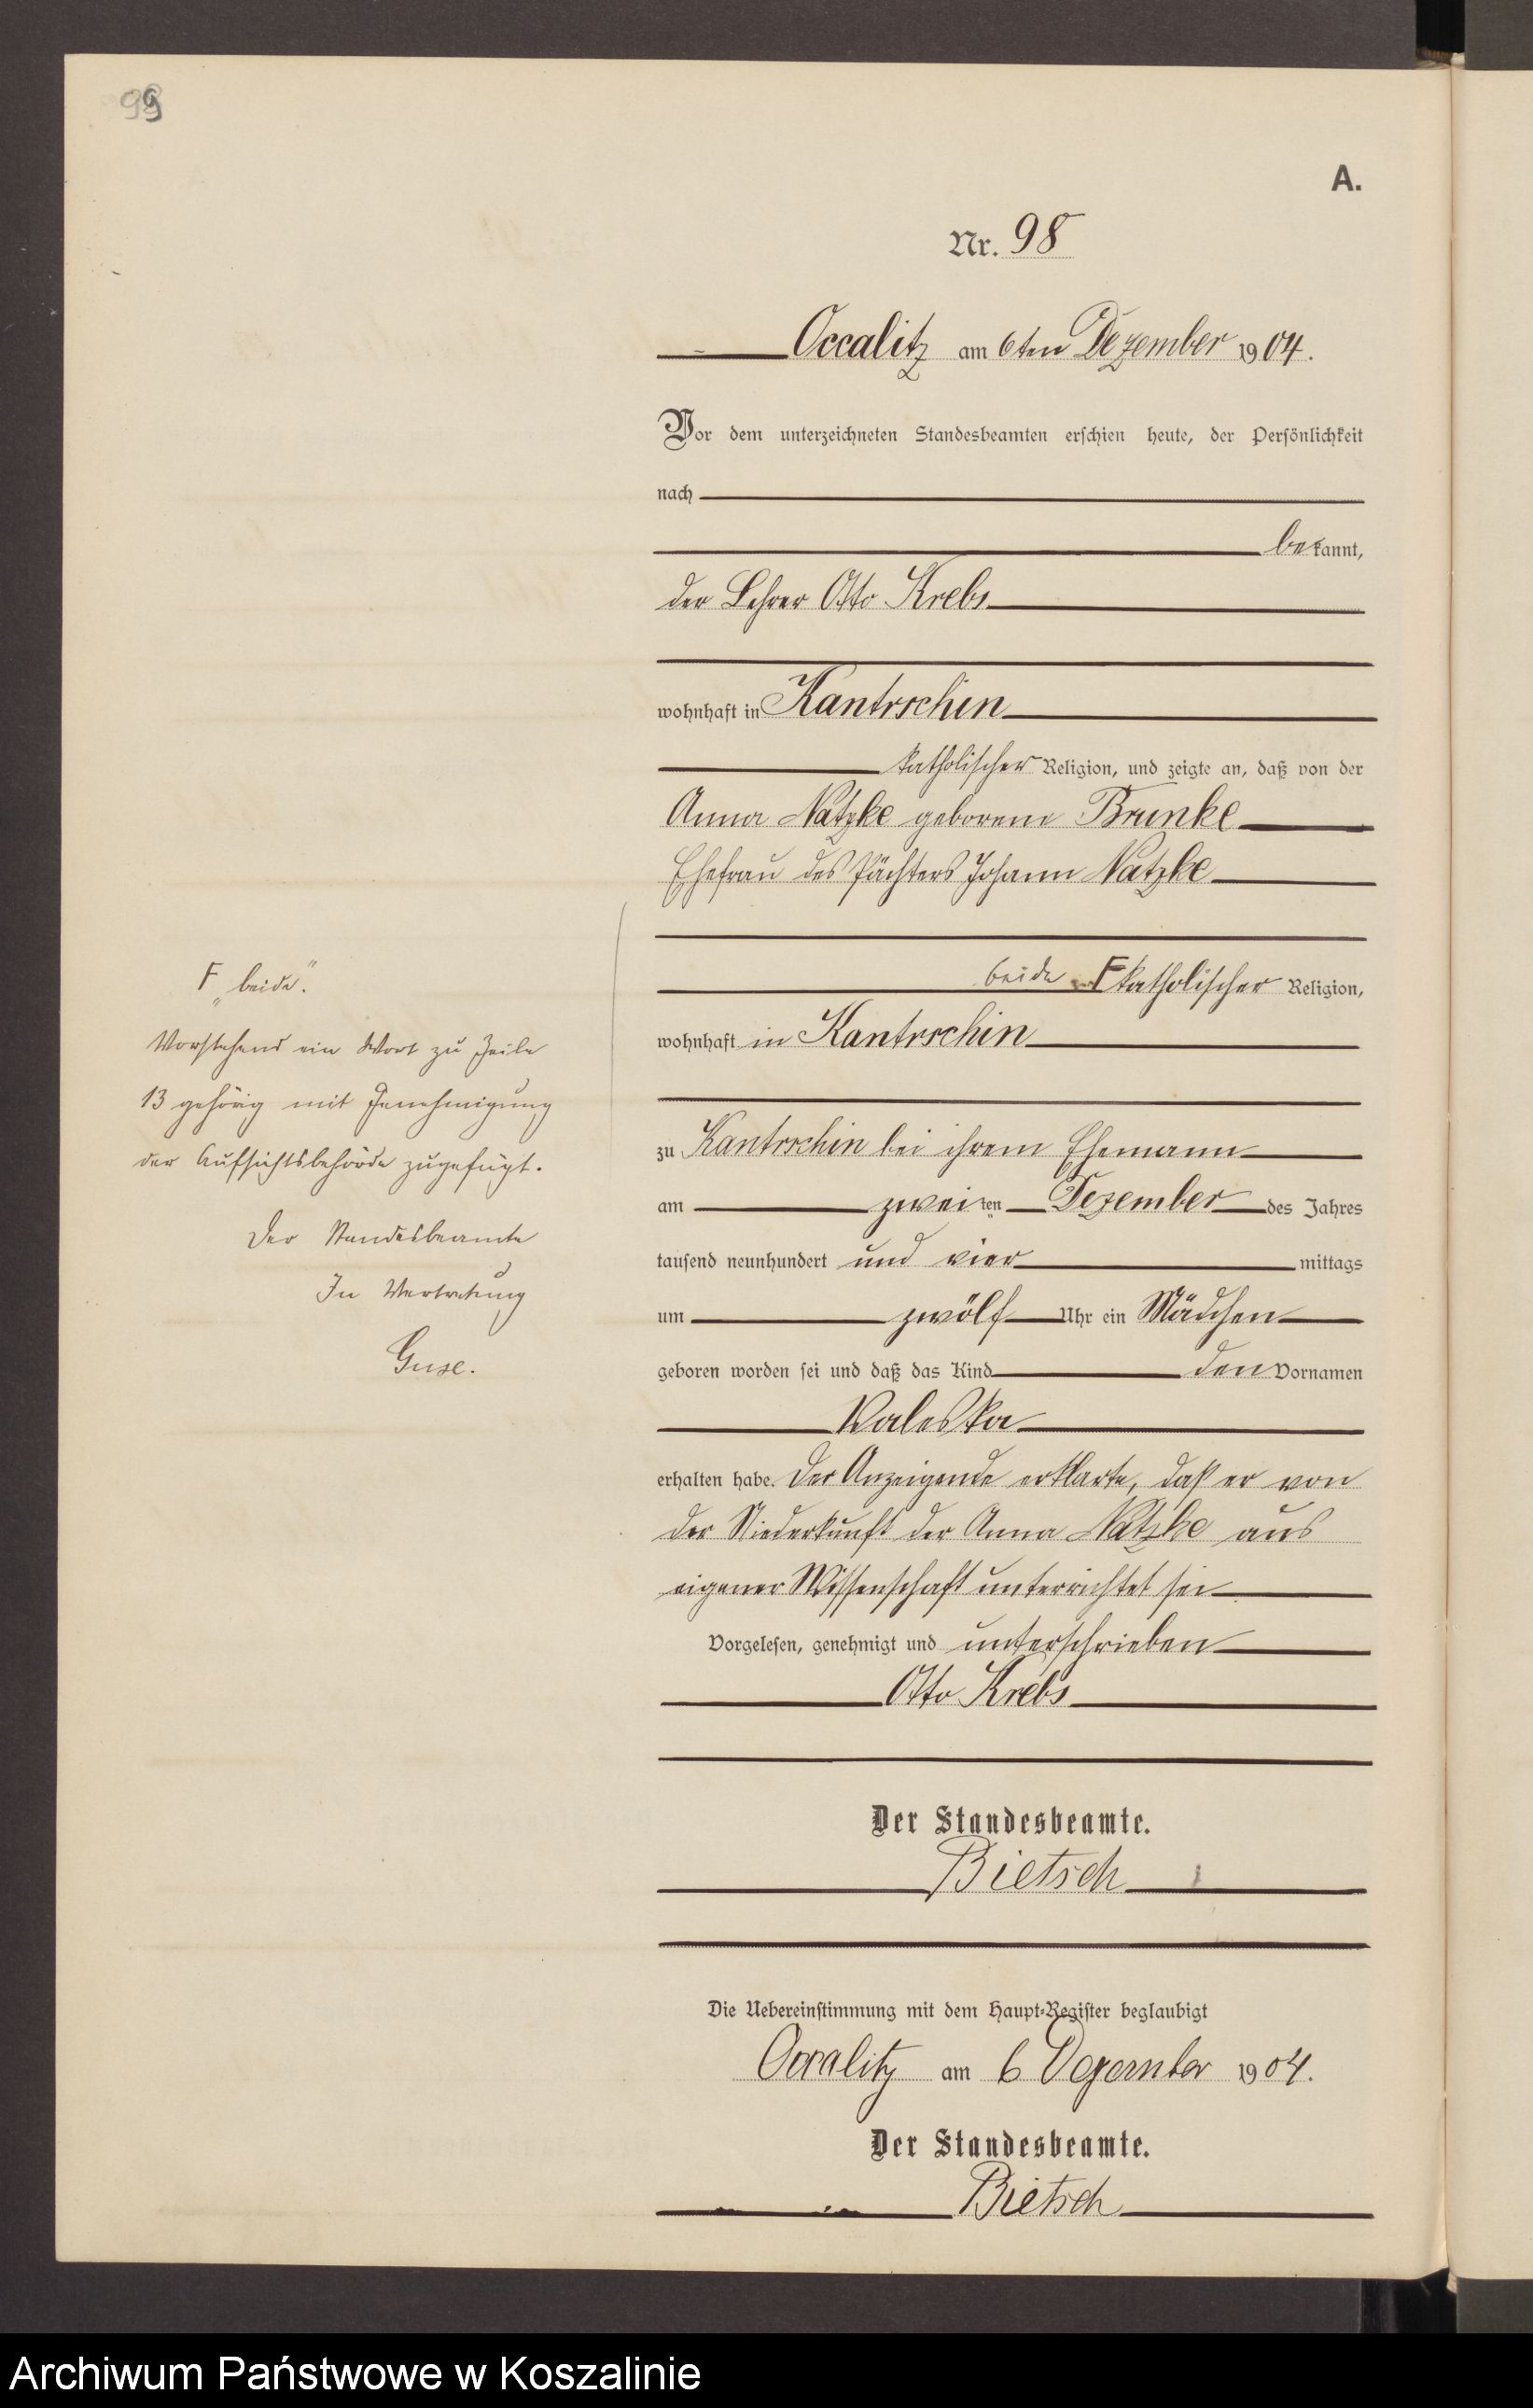 99
A.
Nr. 98
Occalitz am 6ten Dezember 1904.
Vor dem unterzeichneten Standesbeamten erschien heute, der Persönlichkeit
nach
bekannt,
der Lehrer Otto Krebs
wohnhaft in Kantrschin
katholischer Religion, und zeigte an, daß von der
Anna Natzke geborene Brunke
Ehefrau des Pächters Johann Natzke
beide F katholischer Religion,
wohnhaft in Kantrschin
zu Kantrschin bei ihrem Ehemann
am zweiten Dezember des Jahres
tausend neunhundert und vier mittags
um zwölf Uhr ein Mädchen
geboren worden sei und daß das Kind den Vornamen
Valeska
erhalten habe. Der Anzeigende erklarte, daß er von
der Niederkunft der Anna Natzke aus
eigener Wissenschaft unterrichtet sei
Vorgelesen, genehmigt und unterschrieben
Otto Krebs
Der Standesbeamte.
Bietsch
Die Uebereinstimmung mit dem Haupt-Register beglaubigt
Occalitz am 6 Dezember 1904.
Der Standesbeamte.
Bietsch
F „beide".
Vorstehend ein Wort zu Zeile
13 gehörig mit Genehmigung
der Aufsichtsbehörde zugefügt.
Der Standesbeamte
In Vertretung
Guse.
Archiwum Państwowe w Koszalinie